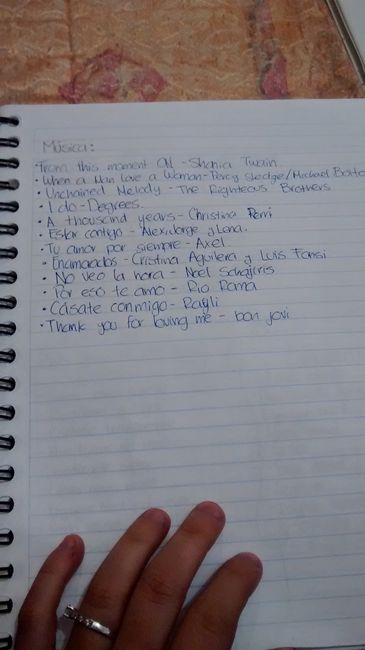 Música:
• From this moment On - Shania Twain
• When a Man love a Woman - Percy Sledge/Michael Bolto
• Unchained Melody - The Righteous Brothers
• I do - Degrees.
• A thousand years - Christina Perri
• Estar contigo - Alex, Jorge y Lena.
• Tu amor por siempre - Axel
• Enamorados - Cristina Aguilera y Luis Fonsi
• No veo la hora - Noel Schajris
• Por eso te amo - Rio Roma
• Cásate conmigo -
• Thank you for loving me - bon jovi